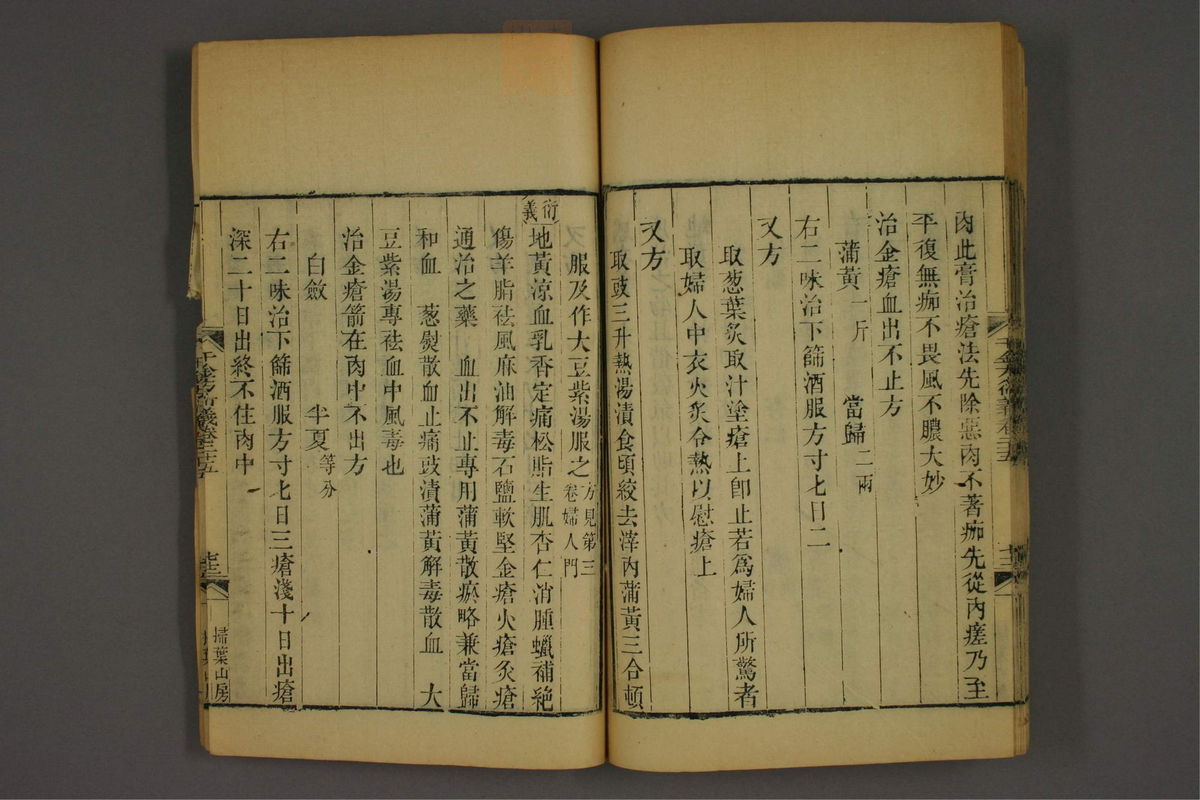 肉此膏治瘡法先除惡肉不著痂先從內瘥乃至
平復無痂不畏風不膿大妙
治金瘡血出不止方
蒲黃一斤　當歸二兩
右二味治下篩酒服方寸匕日二
又方
取葱葉炙取汁塗瘡上卽止若爲婦人所驚者
取婦人中衣火炙令熱以慰瘡上
又方
取豉三升熱湯漬食頃絞去滓內蒲黃三合頓
服及作大豆紫湯服之方見第三卷婦人門
衍義
地黃涼血乳香定痛松脂生肌杏仁消腫蠟補絶
傷羊脂祛風麻油解毒石鹽軟堅金瘡火瘡灸瘡
通治之藥　血出不止專用蒲黃散瘀略兼當歸
和血　葱熨散血止痛豉漬蒲黃解毒散血　大
豆紫湯專祛血中風毒也
治金瘡箭在肉中不出方
白斂　半夏等分
右二味治下篩酒服方寸匕日三瘡淺十日出瘡
深二十日出終不住肉中
千金方衍義卷二十五
掃葉山房